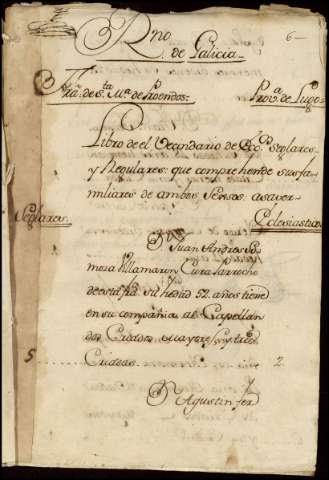 6
Rno.
de Galicia
Fra. de Sta. Ma. de Proendos.
Prova. de Lugo
Libro de el Vecindario de Eccos. Seglares
y Regulares: que comprehende sus fa-
miliares de ambos Sexsos: asaver
Seglares
Eclesiasticos
Dn. Juan Andres So-
moza Villamarin Cura Parrocho
de esta fra. su hedad 52. años tiene
en su compañia al Capellan
dos Criados mayores, y tres
5
Criadas
2
Dn. Agustin fer